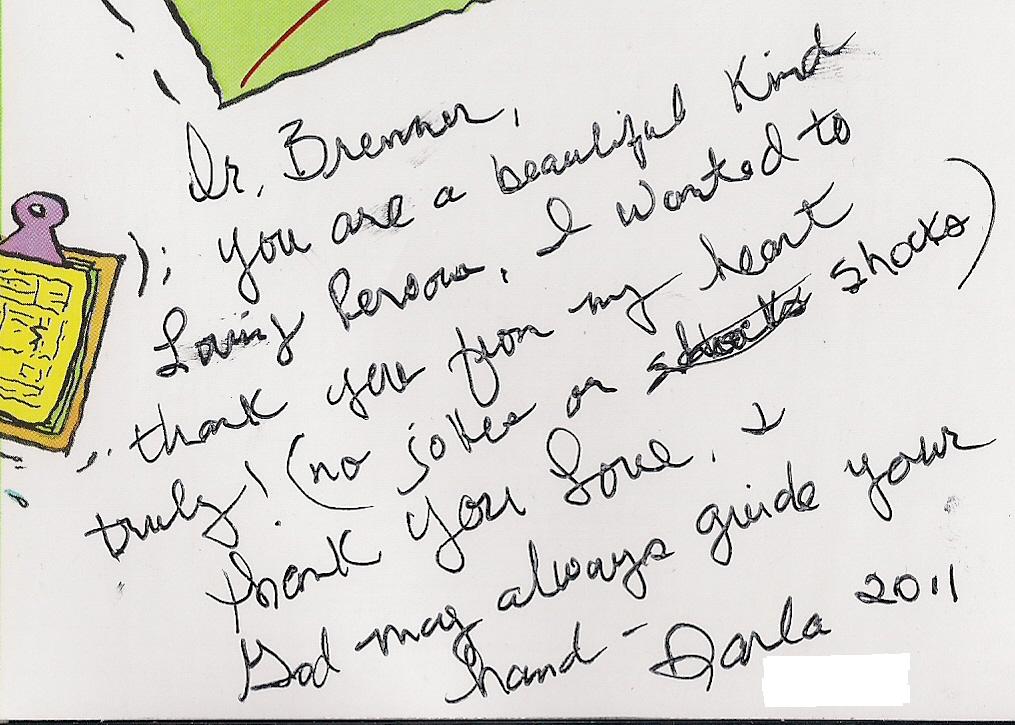 Dr. Brenner,
you are a beautiful Kind
Loving Person, I wanted to
thank you from my heart
truly! (no jokes or shocks)
thank you Love. &
God may always guide your
hand - Darla 2011